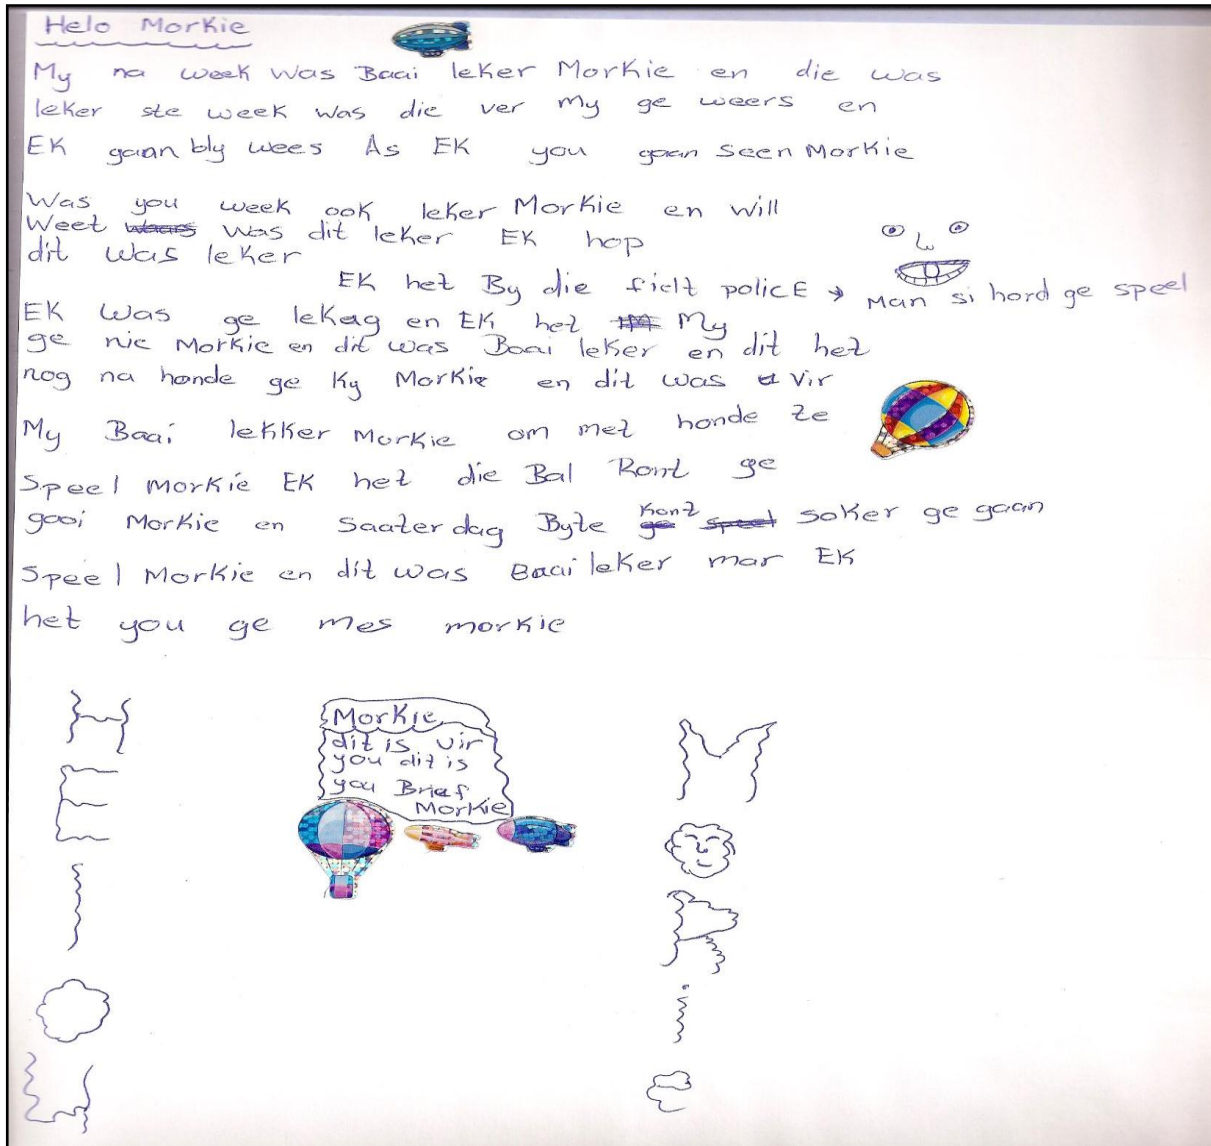 Helo Morkie
My na week was Baai leker Morkie en die was
leker ste week was die ver My ge weers en
EK gaan bly wees As EK you gaan seen Morkie
Was you week ook leker Morkie en will
Weet was dit leker EK hop
dit was leker
EK het By die fielt policE → Man si hord ge speel
EK was ge lekag en EK het My
ge nie Morkie en dit was Baai leker en dit het
nog na honde ge Ky Morkie en dit was vir
My Baai lekker Morkie om met honde te
Speel Morkie EK het die Bal Ront ge
gooi Morkie en Saaterdag Byte kont soker ge gaan
Speel Morkie en dit was Baai leker mar EK
het you ge mes morkie
Morkie
dit is vir
you dit is
you Brief
Morkie
H
E
l
O
M
R
i
e